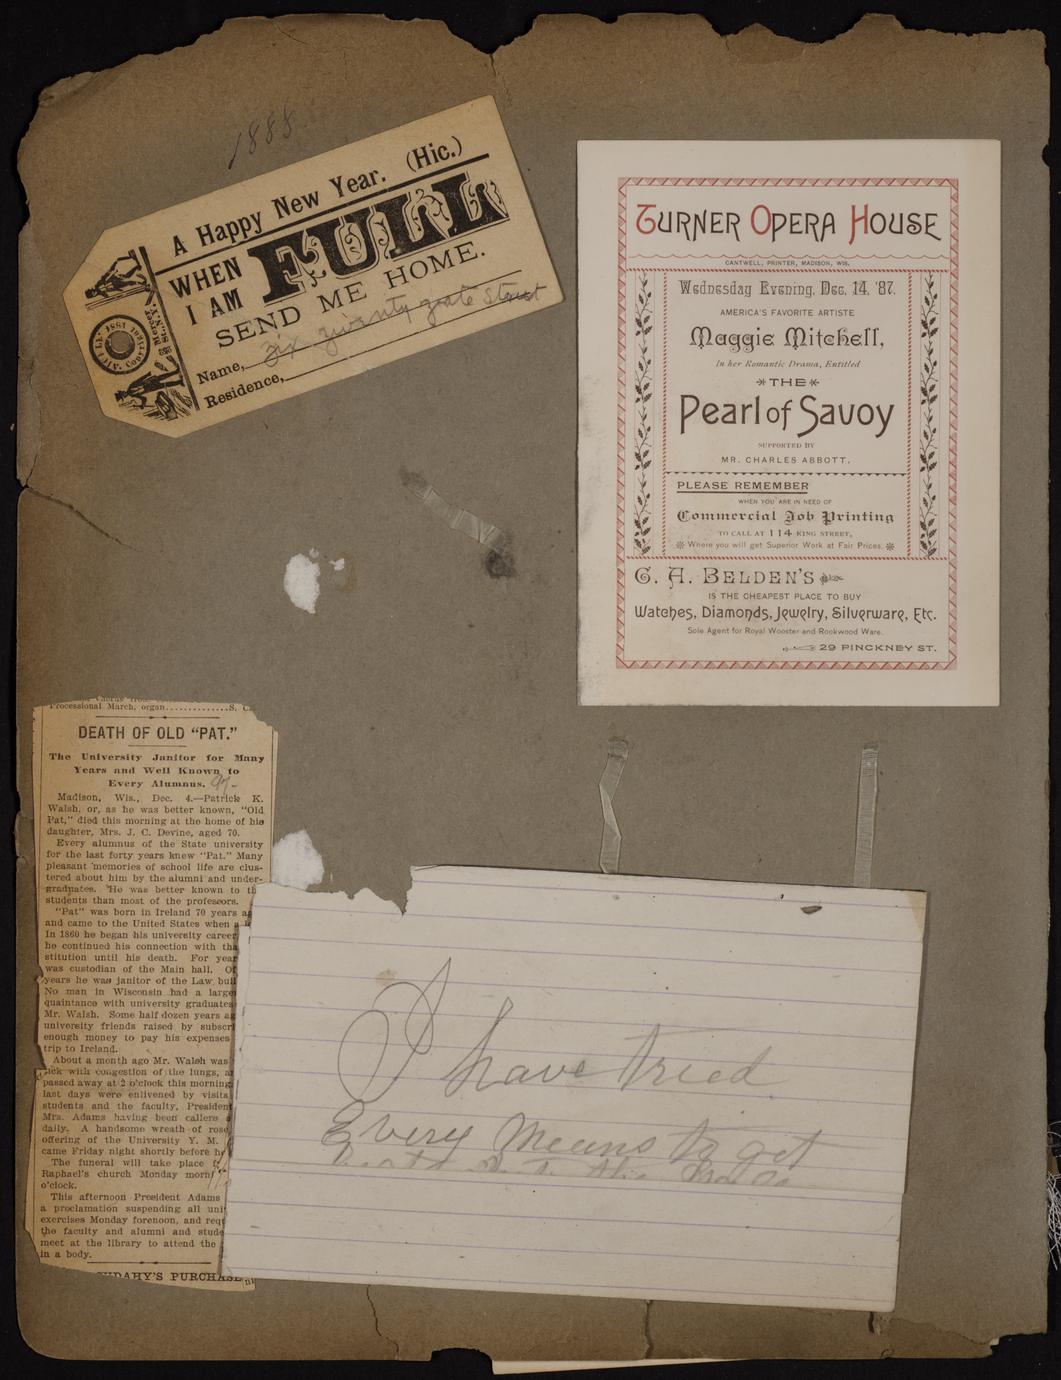 1888
A Happy New Year. (Hic.)
WHEN I AM FULL
SEND ME HOME.
Name, zix zwenty gate Street
Residence,
Copyright 1881
TURNER OPERA HOUSE
CANTWELL, PRINTER, MADISON, WIS.
Wednesday Evening, Dec. 14, '87.
AMERICA'S FAVORITE ARTISTE
Maggie Mitchell,
In her Romantic Drama, Entitled
THE
Pearl of Savoy
SUPPORTED BY
MR. CHARLES ABBOTT.
PLEASE REMEMBER
WHEN YOU ARE IN NEED OF
Commercial Job Printing
TO CALL AT 114 KING STREET,
Where you will get Superior Work at Fair Prices.
C. A. BELDEN'S
IS THE CHEAPEST PLACE TO BUY
Watches, Diamonds, Jewelry, Silverware, Etc.
Sole Agent for Royal Wooster and Rookwood Ware.
29 PINCKNEY ST.
Processional March, organ.............S.
DEATH OF OLD "PAT."
The University Janitor for Many
Years and Well Known to
Every Alumnus. 97-
Madison, Wis., Dec. 4.—Patrick K.
Walsh, or, as he was better known, "Old
Pat," died this morning at the home of his
daughter, Mrs. J. C. Devine, aged 70.
Every alumnus of the State university
for the last forty years knew "Pat." Many
pleasant memories of school life are clus-
tered about him by the alumni and under-
graduates. He was better known to th
students than most of the professors.
"Pat" was born in Ireland 70 years a
and came to the United States when a
In 1860 he began his university career
he continued his connection with tha
stitution until his death. For year
was custodian of the Main hall. Of
years he was janitor of the Law buil
No man in Wisconsin had a large
quaintance with university graduates
Mr. Walsh. Some half dozen years ag
university friends raised by subscri
enough money to pay his expenses
trip to Ireland.
About a month ago Mr. Walsh was
sick with congestion of the lungs, a
passed away at 2 o'clock this morning
last days were enlivened by visits
students and the faculty, President
Mrs. Adams having been callers
daily. A handsome wreath of rose
offering of the University Y. M.
came Friday night shortly before h
The funeral will take place
Raphael's church Monday morn
o'clock.
This afternoon President Adams
a proclamation suspending all uni
exercises Monday forenoon, and requ
the faculty and alumni and stude
meet at the library to attend the
in a body.
UDAHY'S PURCHASE
I have tried
Every Means to get